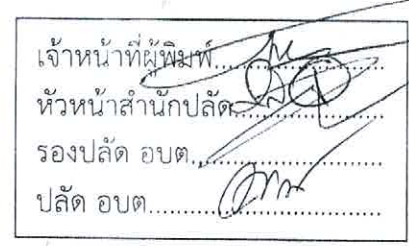 เจ้าหน้าที่ผู้พิมพ์....................
หัวหน้าสำนักปลัด....................
รองปลัด อบต.........................
ปลัด อบต..............................